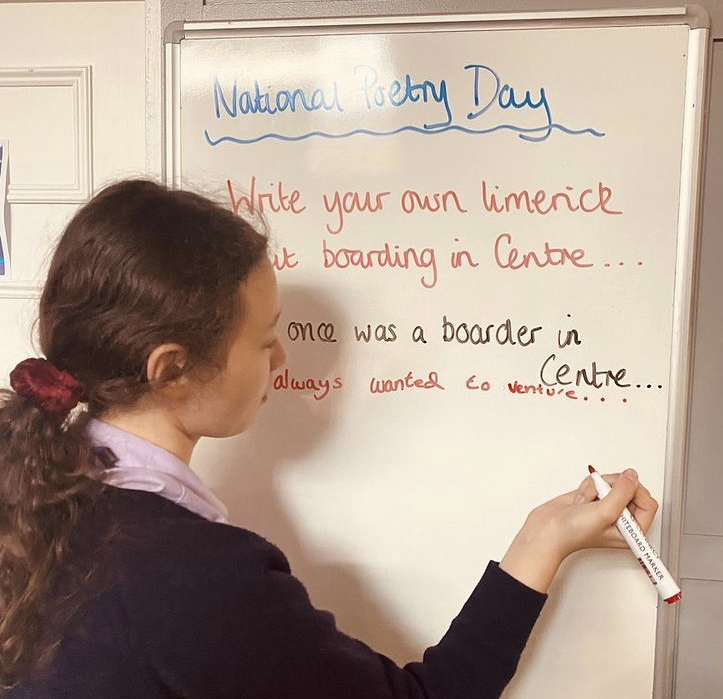 National Poetry Day
Write your own limerick
boarding in Centre...
once was a boarder in
Centre...
always wanted to venture....
WHITEBOARD MARKER